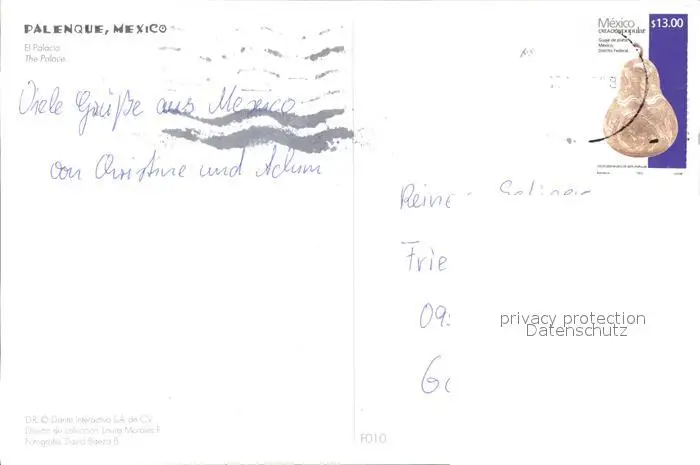 PALENQUE, MEXICO
El Palacio
The Palace
Viele Grüße aus Mexico
von Christine und Achim
México
CREACIÓN popular
Guaje de plata
México,
Distrito Federal
$13.00
Reine
Frie
09
privacy protection
Datenschutz
D.R. © Dante Interactivo S.A. de C.V.
Diseño de colección: Laura Morales F.
Fotografía: David Baeza B.
F010